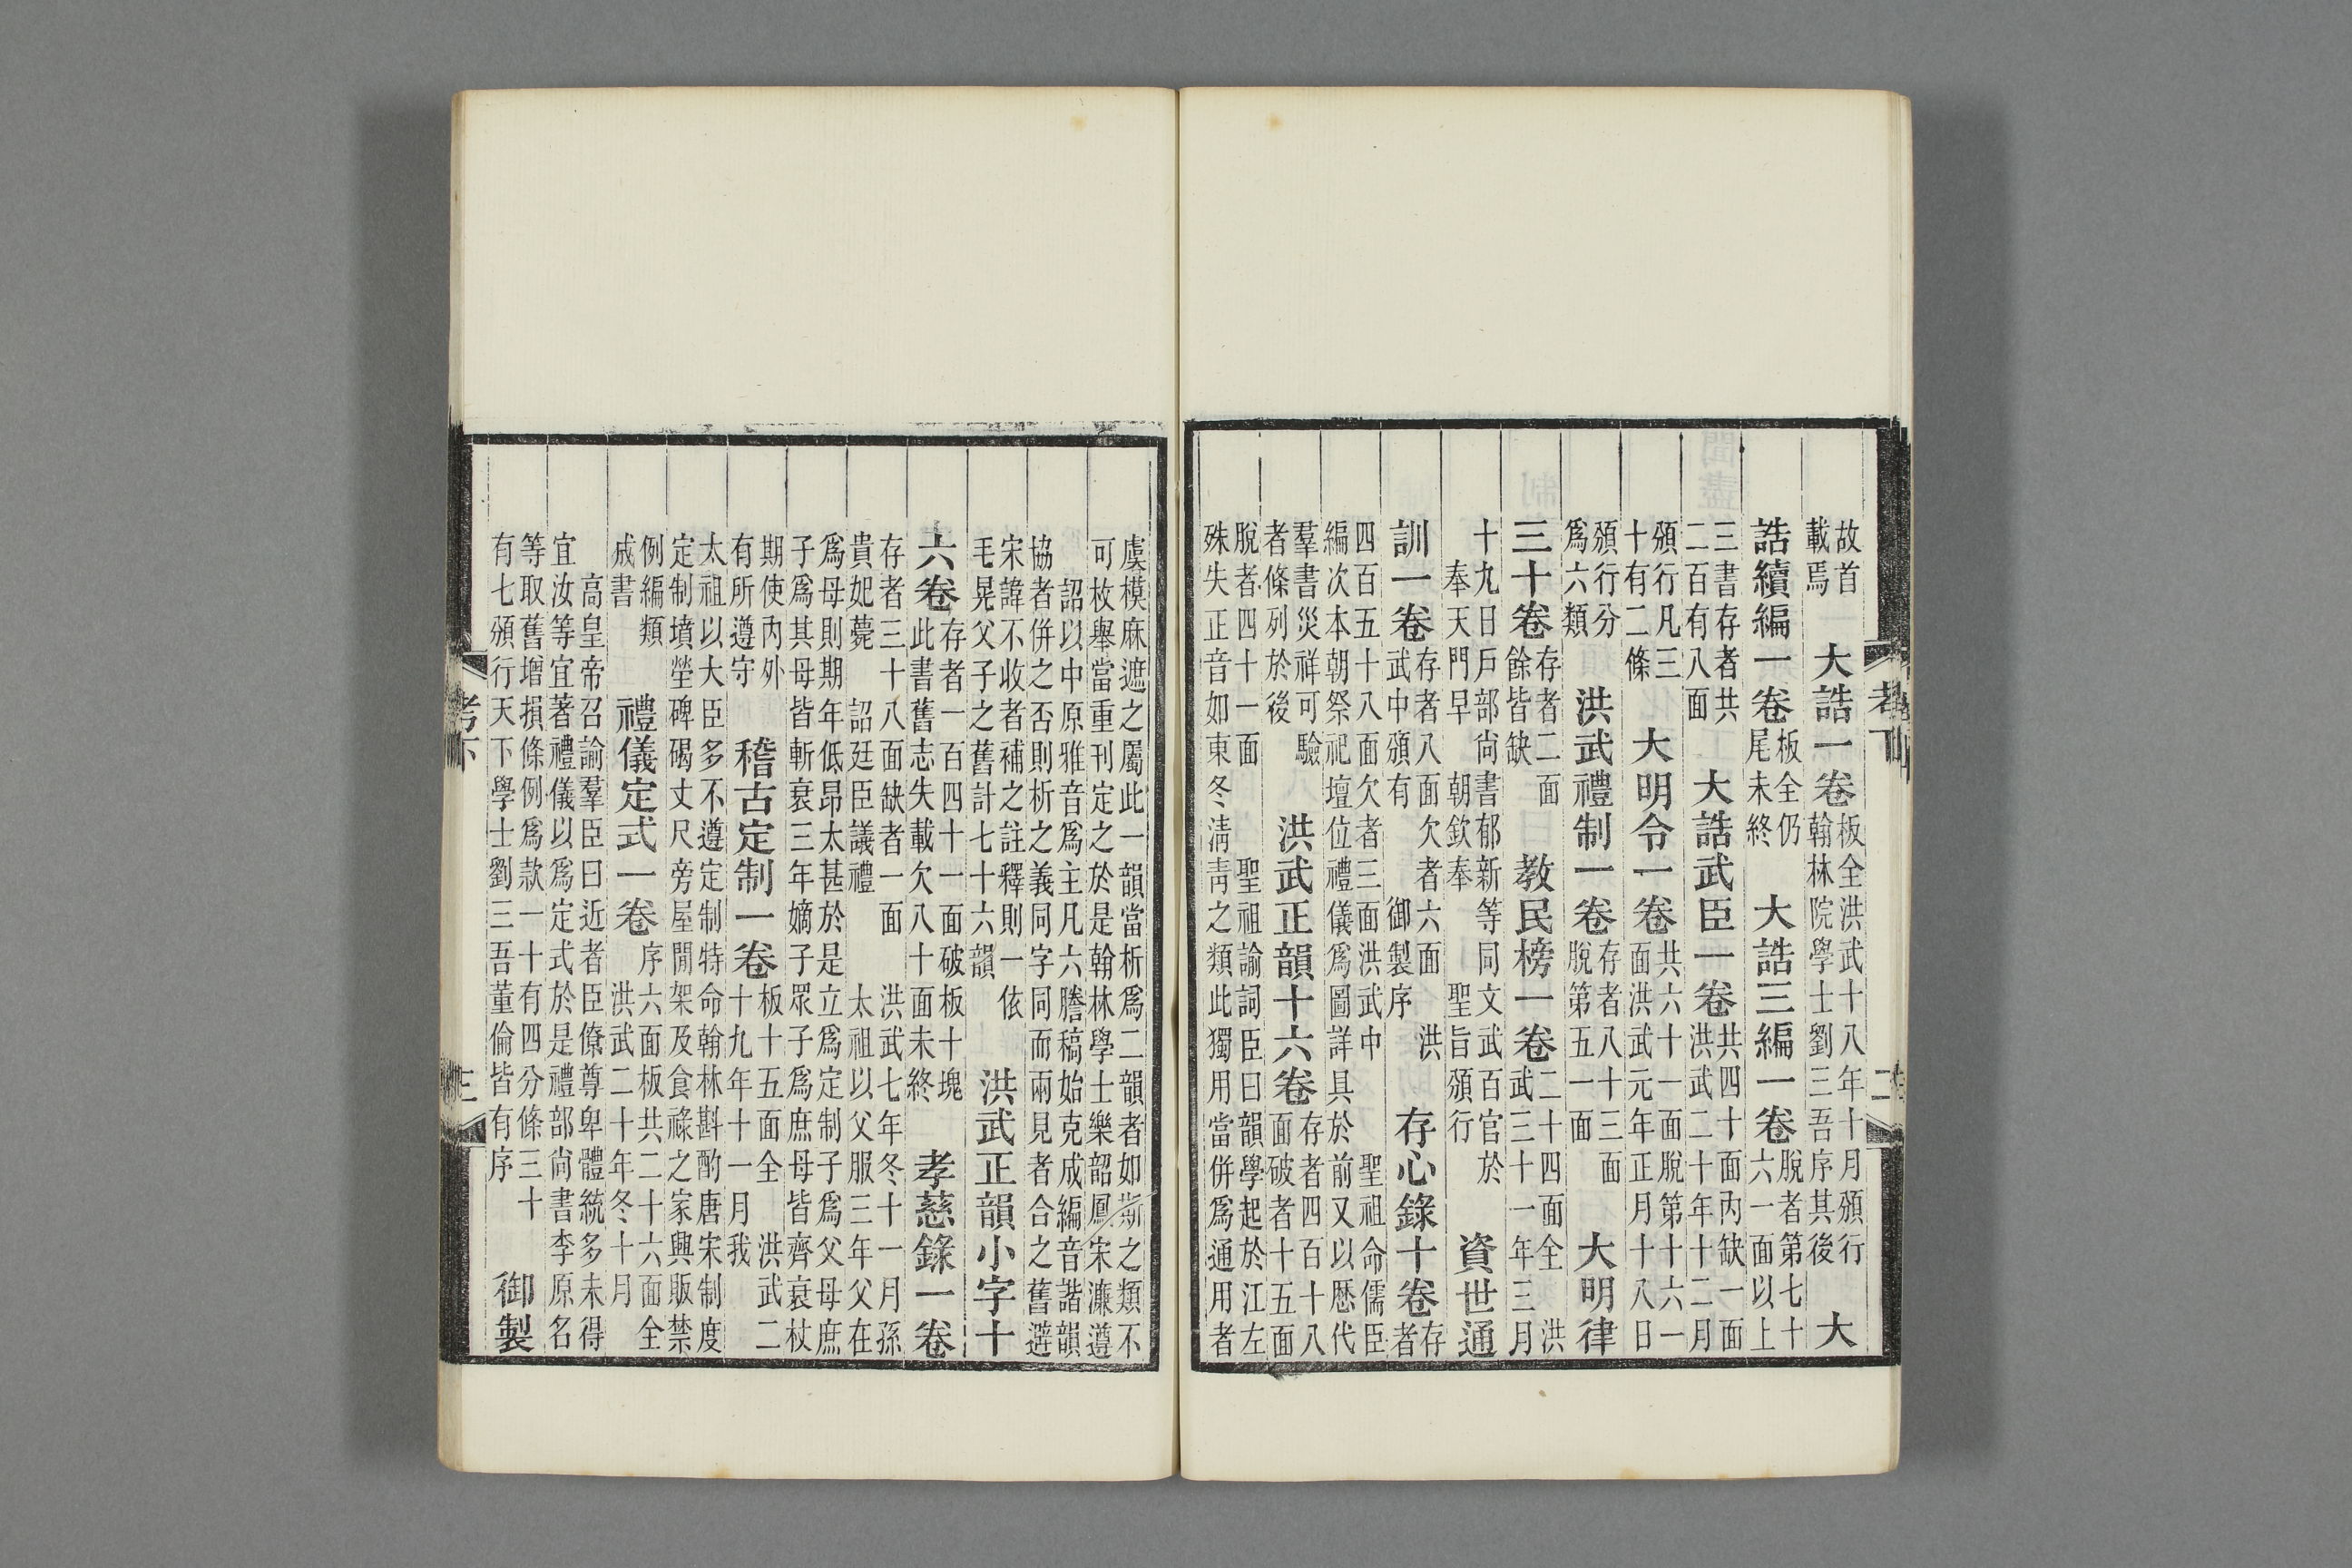 故首載焉 大誥一卷 板全洪武十八年十月頒行翰林院學士劉三吾序其後 大
誥續編一卷 板全仍尾未終 大誥三編一卷 脫者第七十六一面以上
三書存者共二百有八面 大誥武臣一卷 共四十面內缺一面洪武二十年十二月
頒行凡三十有二條 大明令一卷 共六十一面脫第十六一面洪武元年正月十八日
頒行分爲六類 洪武禮制一卷 存者八十三面脫第五一面 大明律
三十卷 存者二面餘皆缺 教民榜一卷 二十四面全 洪武三十一年三月
十九日戶部尚書郁新等同文武百官於奉天門早 朝欽奉 聖旨頒行 資世通
訓一卷 存者八面欠者六面 洪武中頒有 御製序 存心錄十卷 存者
四百五十八面欠者三面洪武中 聖祖命儒臣編次本朝祭祀壇位禮儀爲圖詳具於前又以歷代
羣書災祥可驗者條列於後 洪武正韻十六卷 存者四百十八面破者十五面
脫者四十一面 聖祖諭詞臣曰韻學起於江左殊失正音如東冬淸靑之類此獨用當併爲通用者
考下 二
虞模麻遮之屬此一韻當析爲二韻者如斯之類不可枚舉當重刊定之於是翰林學士樂韶鳳宋濂遵
詔以中原雅音爲主凡六謄稿始克成編音諧韻協者併之否則析之義同字同而兩見者合之舊避
宋諱不收者補之註釋則一依毛晃父子之舊計七十六韻 洪武正韻小字十
六卷 存者一百四十一面破板十塊此書舊志失載欠八十面未終 孝慈錄一卷
存者三十八面缺者一面 洪武七年冬十一月孫貴妃薨 詔廷臣議禮 太祖以父服三年父在
爲母則期年低昂太甚於是立爲定制子爲父母庶子爲其母皆斬衰三年嫡子眾子爲庶母皆齊衰杖
期使內外有所遵守 稽古定制一卷 板十五面全 洪武二十九年十一月我
太祖以大臣多不遵定制特命翰林斟酌唐宋制度定制墳塋碑碣丈尺旁屋間架及食祿之家興販禁
例編類成書 禮儀定式一卷 序六面板共二十六面全 洪武二十年冬十月
高皇帝召諭羣臣曰近者臣僚尊卑體統多未得宜汝等宜著禮儀以爲定式於是禮部尚書李原名
等取舊增損條例爲款一十有四分條三十有七頒行天下學士劉三吾董倫皆有序 御製
考下 三